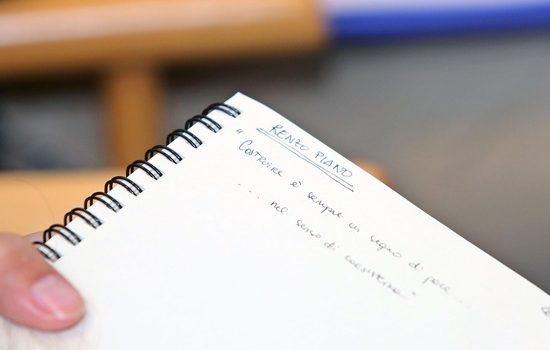 RENZO PIANO
"Costruire è sempre un segno di pace ...
... nel senso di coesistenza"